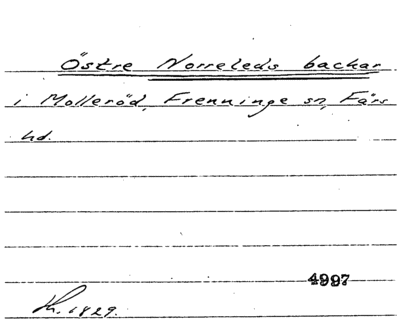 Östre Norreleds backar
i Molleröd, Frenninge sn, Färs
hd.
4997
Kh. 1829.